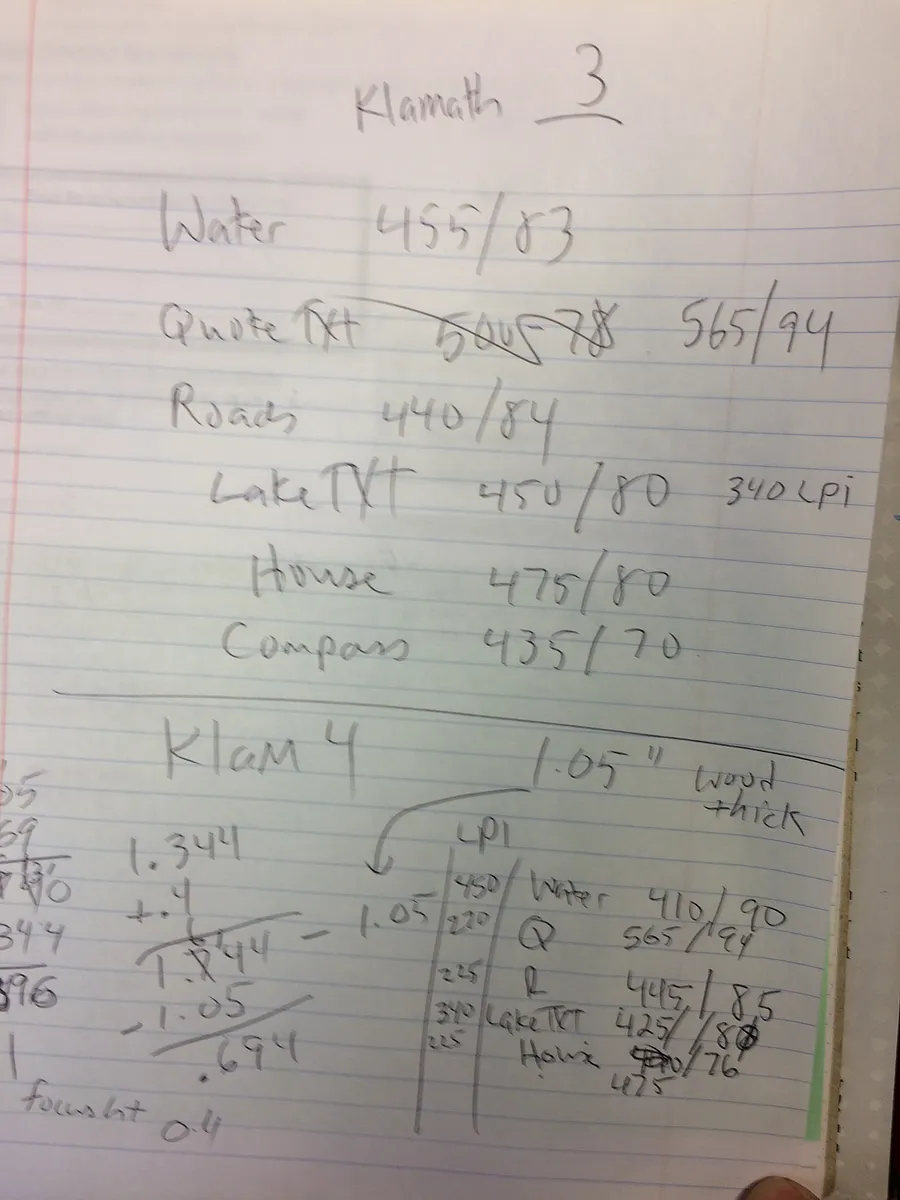 Klamath 3
Water 455/83
Quote Txt 565/94
Roads 440/84
Lake TXT 450/80 340 LPi
House 475/80
Compass 435/70
Klam 4 1.05" wood thick
LPI
450 Water 410/90
220 Q 565/94
225 R 445/85
340 Lake TXT 425/80
225 House 475/76
1.344
+.4
1.744 - 1.05
- 1.05
.694
05
69
344
396
1
focus ht 0.4